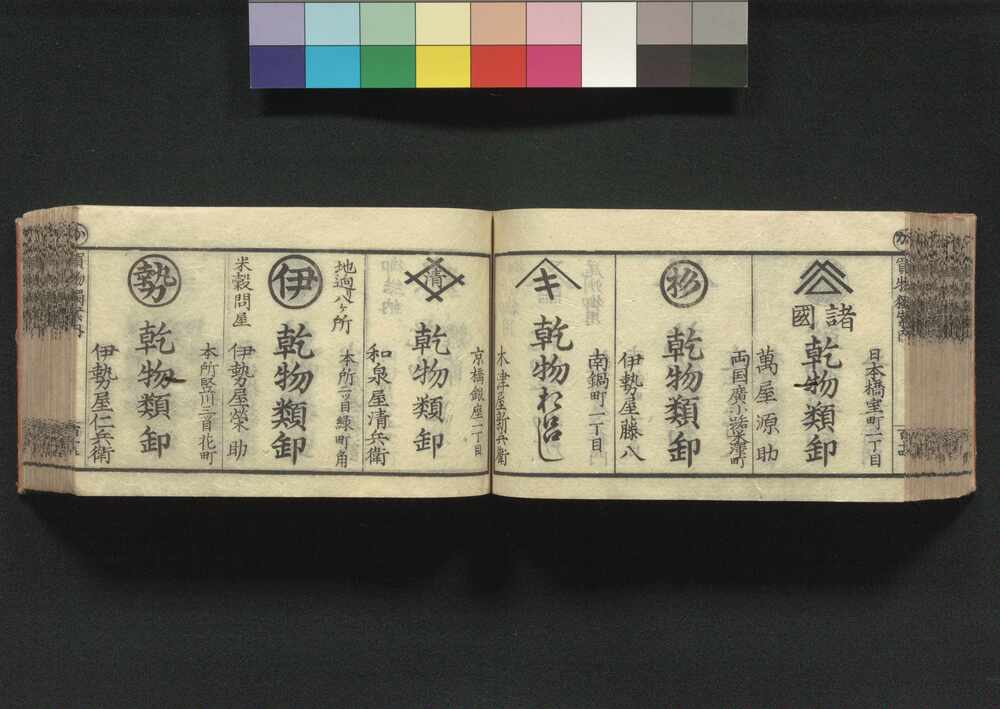 日本橋室町二丁目
諸國
乾物類卸
萬屋源助
両国廣小路米澤町
杉
乾物類卸
伊勢屋藤八
南鍋町二丁目
キ
乾物おろし
木津屋新兵衛
京橋銀座二丁目
清
乾物類卸
和泉屋清兵衛
地廻り八ヶ所
本所二ツ目緑町角
伊
乾物類卸
米穀問屋
伊勢屋榮助
本所竪川三ツ目花町
勢
乾物類卸
伊勢屋仁兵衛